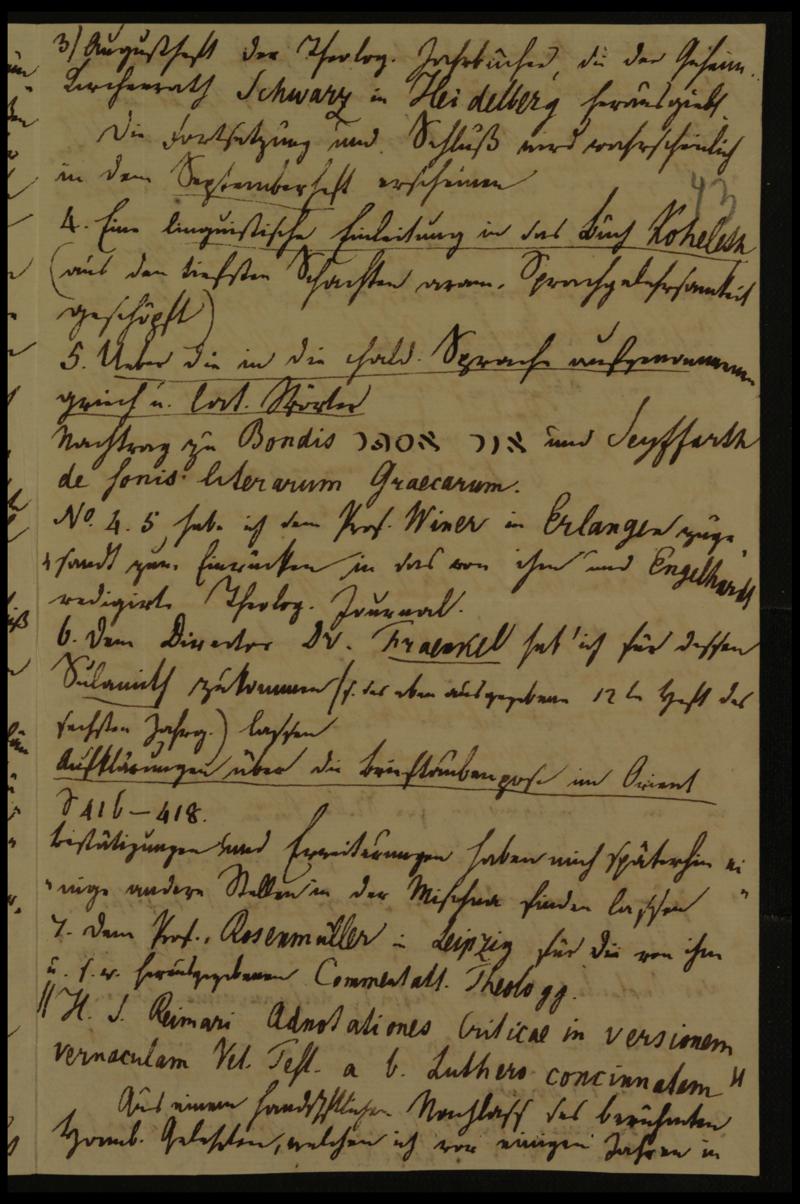 3) Augustheft der Theolog. Jahrbücher, die der Geheim-
Kirchenrath Schwarz in Heidelberg herausgiebt.
Die Fortsetzung und Schluß wird wahrscheinlich
in dem Septemberheft erscheinen
43
4. Eine linguistische Einleitung in das Buch Koheleth
(aus den tiefsten Schachten aram. Sprachgelehrsamkeit
geschöpft)
5. Ueber die in die chald. Sprache aufgenommenen
griech u. lat. Wörter
Nachtrag zu Bondis אור אסתר und Seyffarth
de sonis literarum Graecarum.
No. 4. 5 habe ich dem Prof. Winer in Erlangen zuge-
sandt zum Einrücken in das von ihm und Engelhardt
redigirte Theolog. Journal.
6. Dem Director Dr. Fraenkel hab' ich für dessen
Sulamith zukommen (s. das eben ausgegebene 12te Heft des
sechsten Jahrg.) lassen
Aufklärungen über die Brieftaubenpost im Orient
S 416-418.
Bestätigungen und Erweiterungen haben mich späterhin ei-
nige andere Stellen in der Mischna finden lassen
7. Dem Prof. Rosenmüller in Leipzig für die von ihm
u. s. w. herausgegebenen Commentatt. Theologg.
"H. S. Reimari Adnotationes Criticae in versionem
vernaculam Vet. Test. a b. Luthero concinnatam"
Aus einem handschftlichen Nachlass des berühmten
Hamb. Gelehrten, welchen ich vor einigen Jahren in